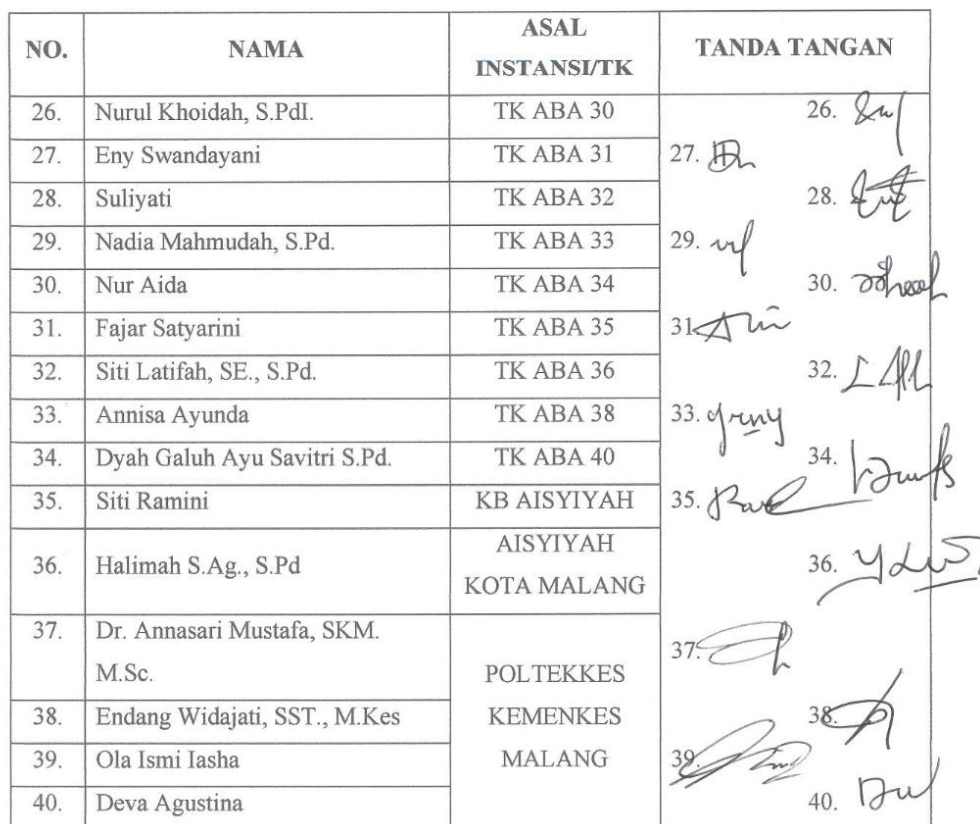 NO. NAMA ASAL INSTANSI/TK TANDA TANGAN
26. Nurul Khoidah, S.PdI. TK ABA 30 26.
27. Eny Swandayani TK ABA 31 27.
28. Suliyati TK ABA 32 28.
29. Nadia Mahmudah, S.Pd. TK ABA 33 29.
30. Nur Aida TK ABA 34 30.
31. Fajar Satyarini TK ABA 35 31
32. Siti Latifah, SE., S.Pd. TK ABA 36 32.
33. Annisa Ayunda TK ABA 38 33.
34. Dyah Galuh Ayu Savitri S.Pd. TK ABA 40 34.
35. Siti Ramini KB AISYIYAH 35.
36. Halimah S.Ag., S.Pd AISYIYAH KOTA MALANG 36.
37. Dr. Annasari Mustafa, SKM. M.Sc. POLTEKKES KEMENKES MALANG 37.
38. Endang Widajati, SST., M.Kes 38.
39. Ola Ismi Iasha 39.
40. Deva Agustina 40.